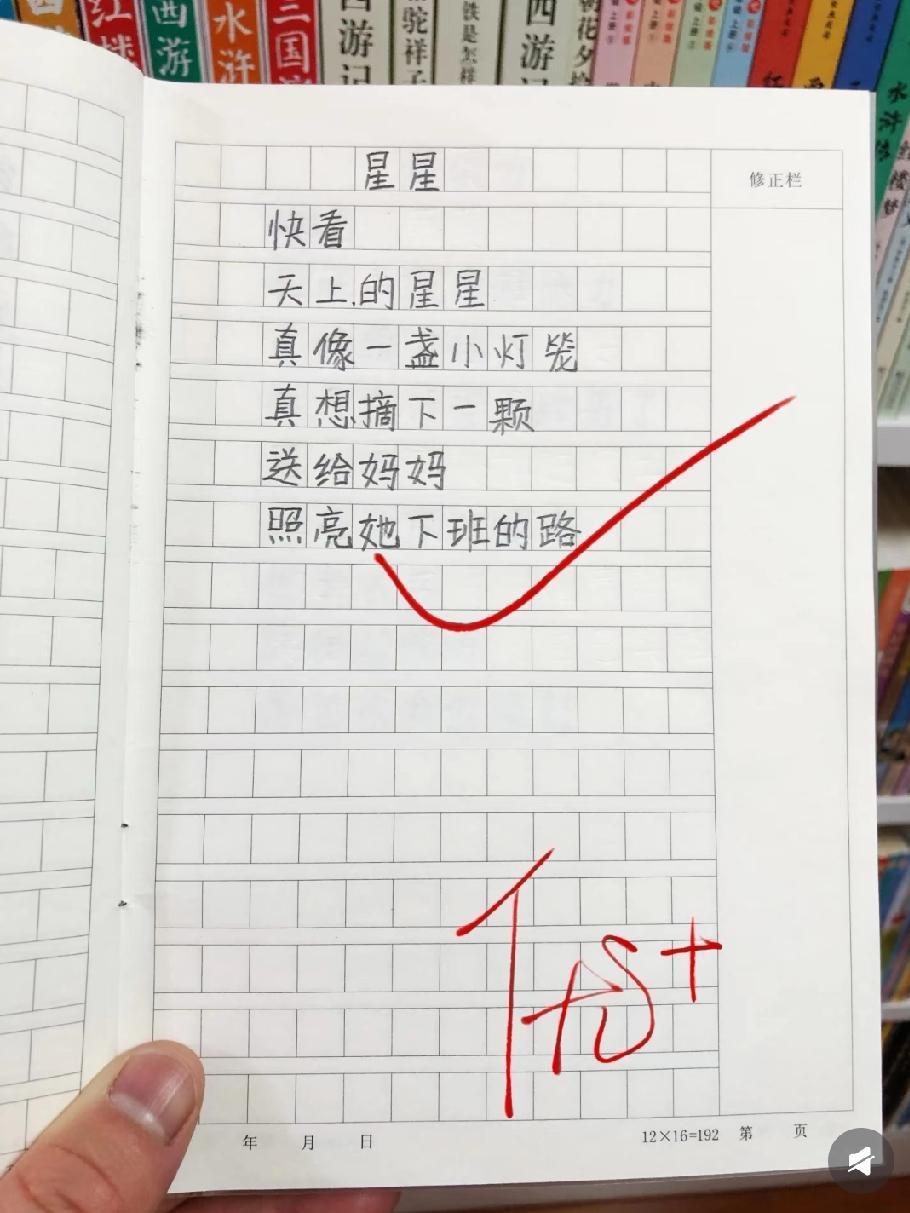 红楼
西游
水浒
三国
西游记
骆驼祥子
铁是怎样
西游记
朝花夕拾
水浒传
红楼梦
星星
修正栏
快看
天上的星星
真像一盏小灯笼
真想摘下一颗
送给妈妈
照亮她下班的路
年 月 日
12×16=192 第 页